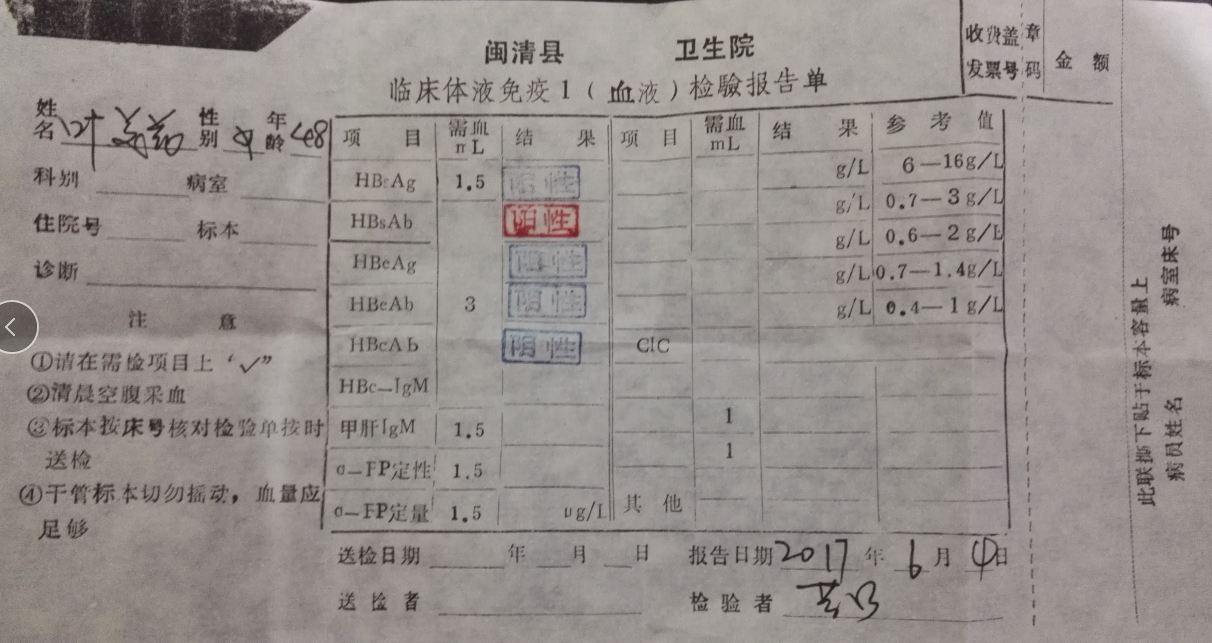 闽清县 卫生院
临床体液免疫1（血液）检验报告单
收费盖章
发票号码
金额
姓名 叶 性别 女 年龄 48
科别 病室
住院号 标本
诊断
注意
①请在需检项目上“√”
②清晨空腹采血
③标本按床号核对检验单按时
送检
④干管标本切勿摇动，血量应
足够
项目 需血mL 结果 项目 需血mL 结果 参考值
HBsAg 1.5 阴性 g/L 6—16g/L
HBsAb 阳性 g/L 0.7—3g/L
HBeAg 阴性 g/L 0.6—2g/L
HBeAb 3 阴性 g/L 0.7—1.4g/L
g/L 0.4—1g/L
HBcAb 阴性 CIC
HBc—IgM
甲肝IgM 1.5 1
α—FP定性 1.5 1
α—FP定量 1.5 μg/L 其他
送检日期 年 月 日 报告日期 2017年6月4日
送检者 检验者
此联撕下贴于标本容量上
病员姓名 病室床号